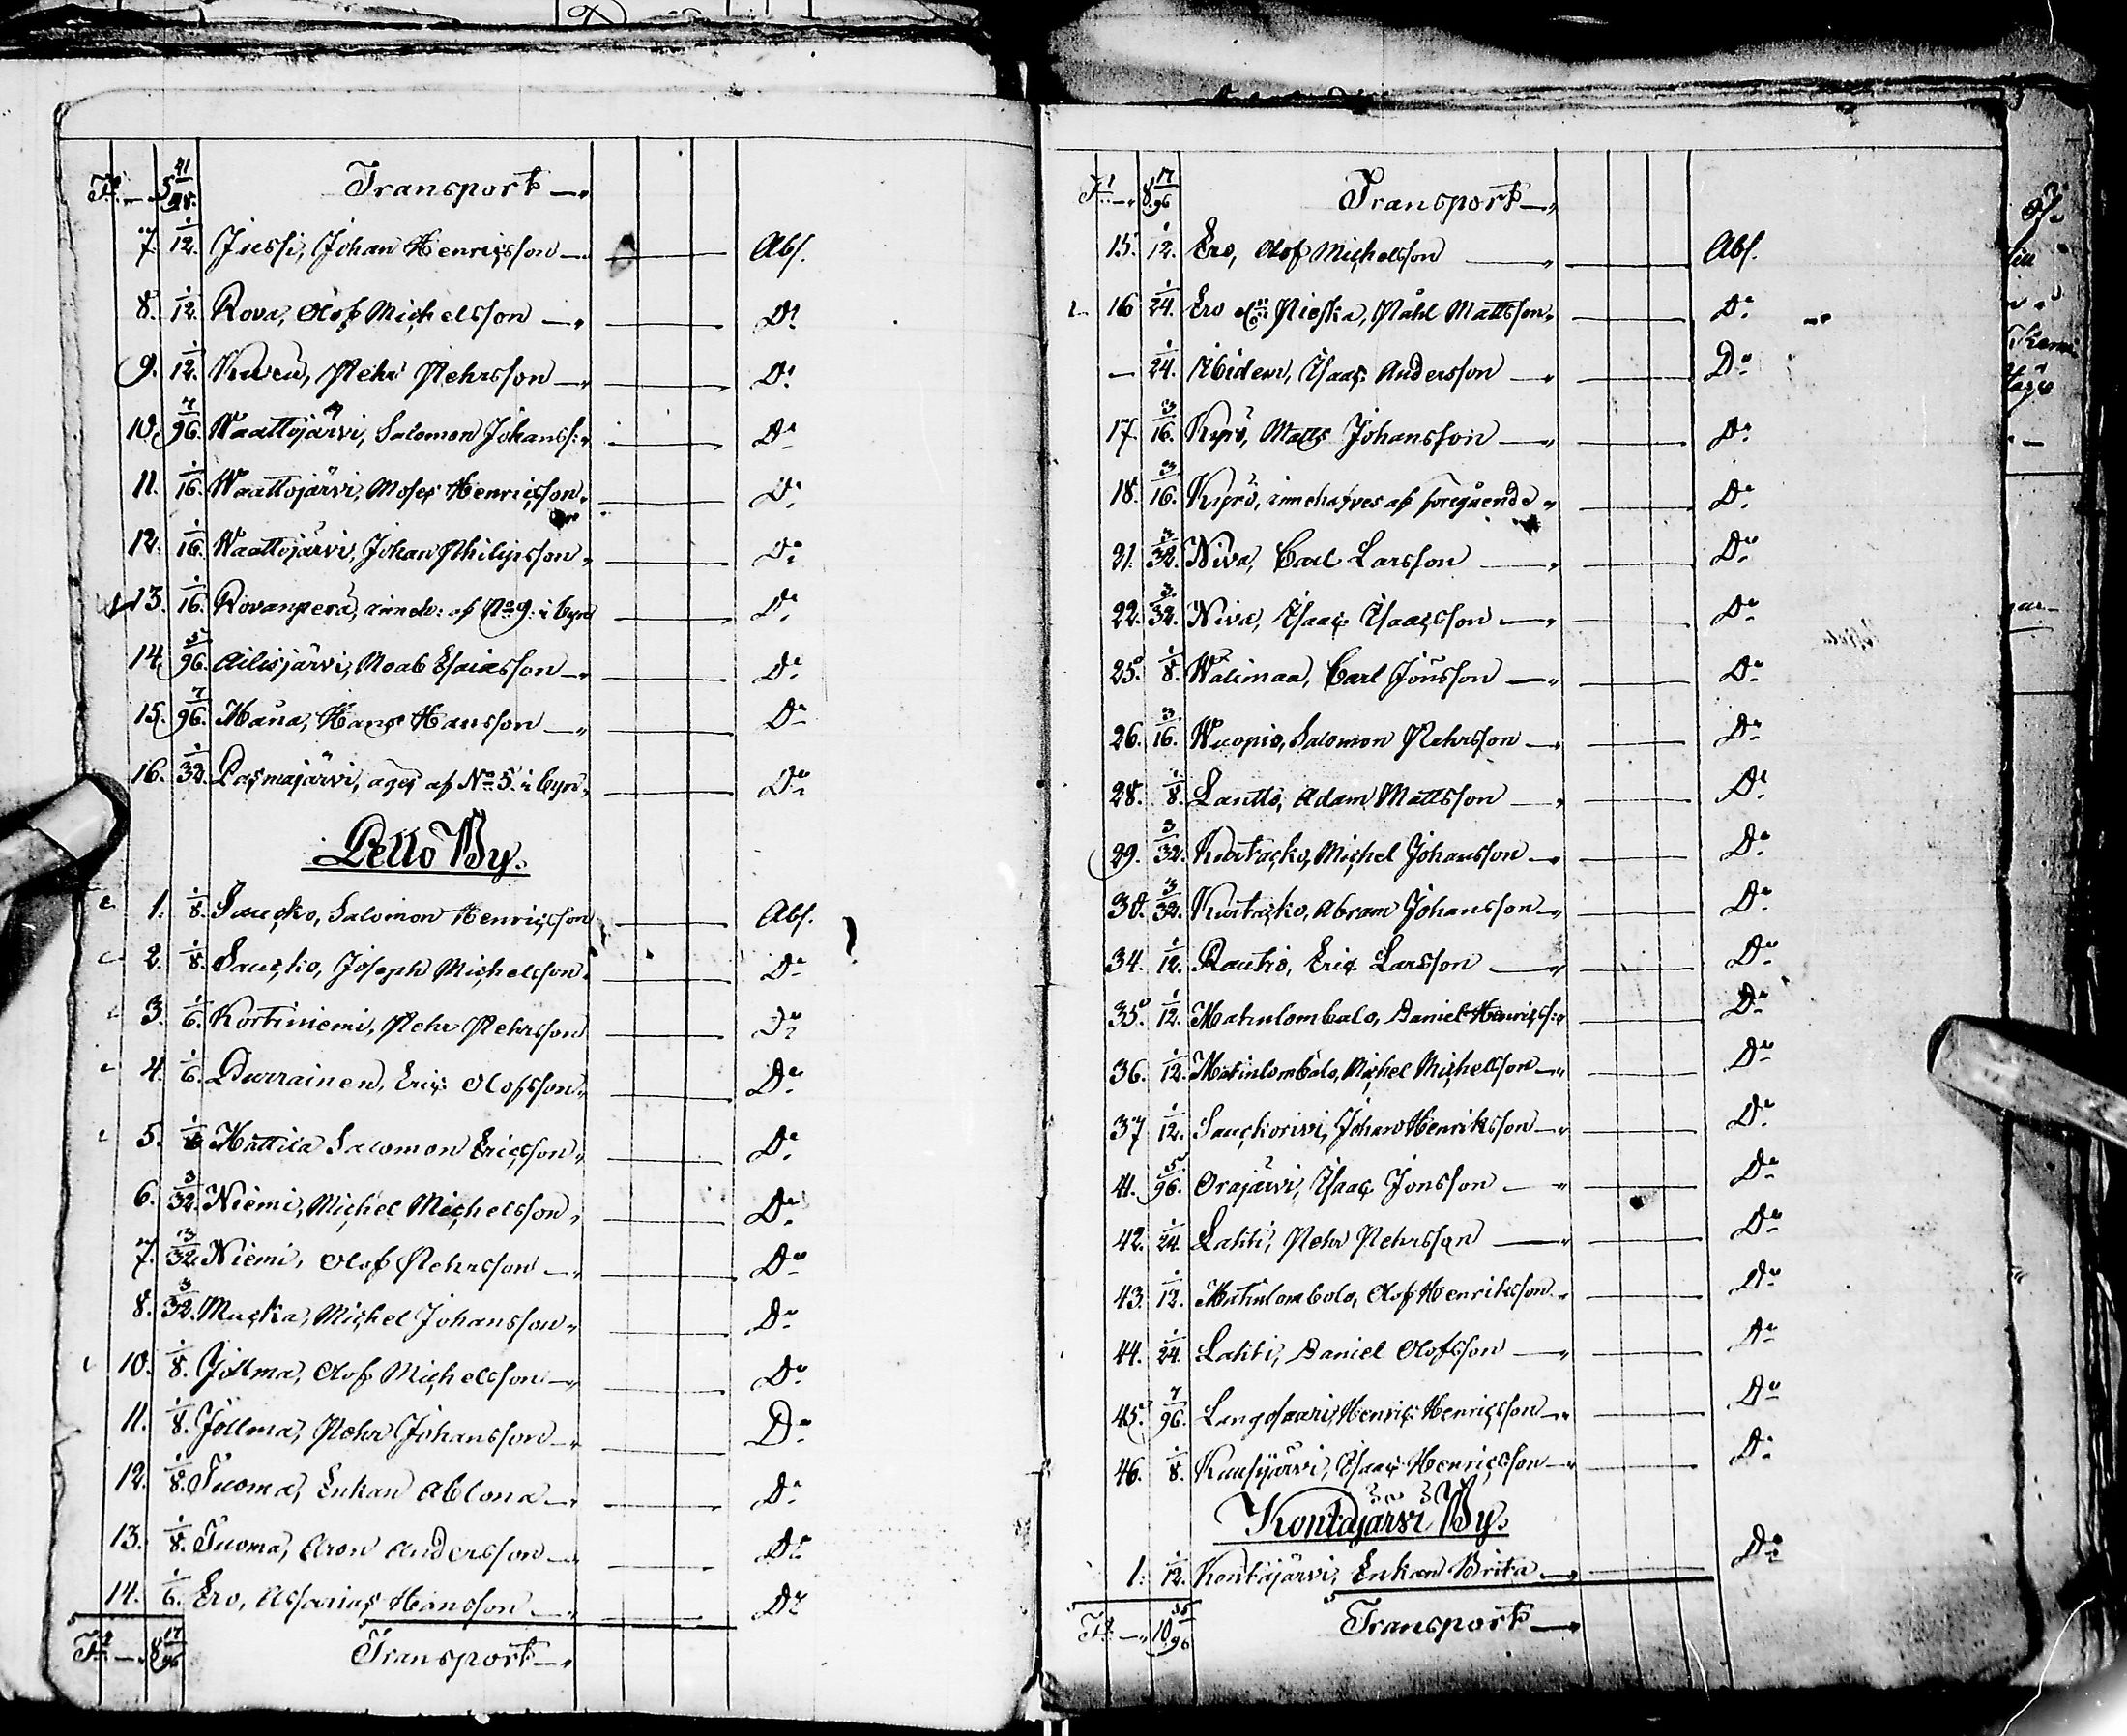 Tr. — 5 41/48. Transport —
7. 1/12. Jussi, Johan Henricsson — Abs.
8. 1/12. Rova, Olof Michelsson — Do
9. 1/12. Pehr Pehrsson — Do
10. 7/96. Waattojärvi, Salomon Johanss:n Do
11. 1/16. Waattojärvi, Moses Henricsson Do
12. 1/16. Waattojärvi, Johan Philipsson Do
13. 1/16. Rovanperä, inneh: af No 9. i byn Do
14. 5/96. Ailisjärvi, Moab Esaiasson — Do
15. 7/96. Hans Hansson — Do
16. 1/32. Pasmajärvi, äges af No 5. i byn Do
Pello By.
1. 1/8. Saucko, Salomon Henricsson Abs.
2. 1/8. Saucko, Joseph Michelsson Do
3. 1/6. Kortiniemi, Pehr Pehrsson Do
4. 1/6. Purrainen, Eric Olofsson Do
5. Mattila Salomon Ericsson Do
6. 3/32. Niemi, Michel Michelsson Do
7. 3/32. Niemi, Olof Pehrsson — Do
8. 3/32. Mucka, Michel Johansson Do
10. 1/8. Jollma, Olof Michelsson — Do
11. 1/8. Jollma, Pehr Johansson — Do
12. 1/8. Tuoma, Enkan Ablona — Do
13. 1/8. Tuoma, Aron Andersson — Do
14. 1/6. Ero, Assarias Hansson — Do
Tr. — 8 17/96 Transport —
Tr. — 8 17/96 Transport —
15. 1/12. Ero, Olof Michelsson — Abs.
16 1/24. Ero Nieska, Påhl Mattsson Do
— 1/24. Ibidem, Isaac Andersson — Do
17. 3/16. Kyrö, Matts Johansson — Do
18. 3/16. Kyrö, innehafves af foregående Do
21. 3/32. Niva, Carl Larsson — Do
22. 3/32. Niva, Isaac Isaacsson — Do
25. 1/8. Wälimaa, Carl Jönsson — Do
26. 3/16. Wuopio, Salomon Pehrsson — Do
28. 1/8. Lantto, Adam Mattsson — Do
29. 3/32. Kurtacko, Michel Johansson — Do
30. 3/32. Kurtacko, Abram Johansson — Do
34. 1/12. Rautio, Eric Larsson — Do
35. 1/12. Matinlombolo, Daniel Henricss:n Do
36. 1/12. Matinlombolo, Michel Michelsson — Do
37 1/12. Sauckorivi, Johan Henriksson — Do
41. 5/96. Orajärvi, Isaac Jonsson — Do
42. 1/24. Lahti, Pehr Pehrsson — Do
43. 1/12. Matinlombolo, Olof Henriksson Do
44. 1/24. Lahti, Daniel Olofsson — Do
45. 7/96. Henric Henricsson — Do
46. 1/8. Isaac Henricsson — Do
Konttajärvi By.
1. 1/12. Konttajärvi, Enkan Brita — Do
Tr. — 10 35/96 Transport —